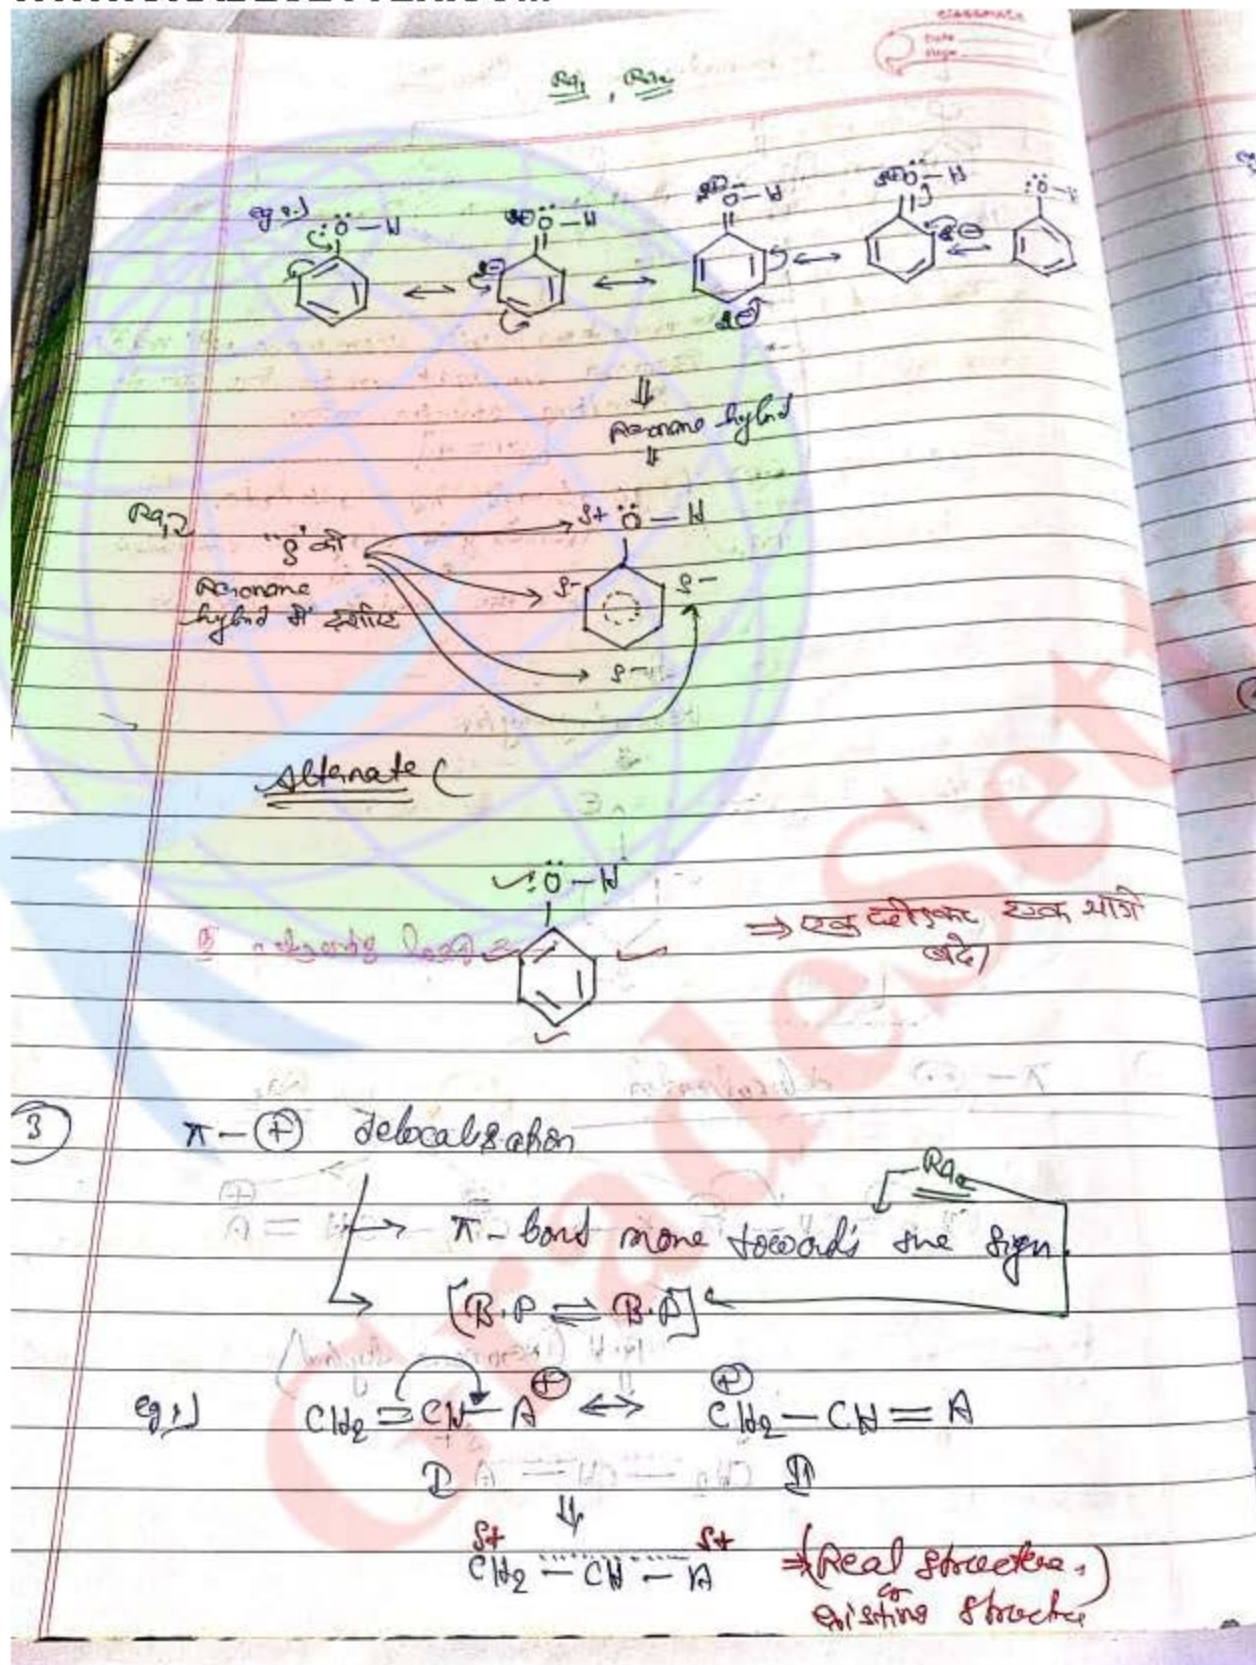 classmate
Date
Page
Rq₁, Rq₂
eg 2.) :Ö – H ⊕Ö – H ⊕Ö – H ⊕Ö – H :Ö – H
↔ ↔ ↔ ↔
⊖ ⊖ ⊖
⇓
Resonance hybrid
⇓
Rq₁ "δ" को δ+ Ö – H
Resonance δ- δ-
hybrid में दर्शाए
δ-
Alternate (
:Ö – H
⇒ एक छोड़कर एक आगे
बढे।
3 π – ⊕ delocalisation
Rq₂
→ π – bond move towards +ve sign
→ [B.P ⇌ B.P]
eg 1.) CH₂ = CH – A⊕ ↔ ⊕CH₂ – CH = A
I II
⇓
δ+ δ+
CH₂ – CH – A ⇒ (Real structure,)
or
existing structure
GradeSetter